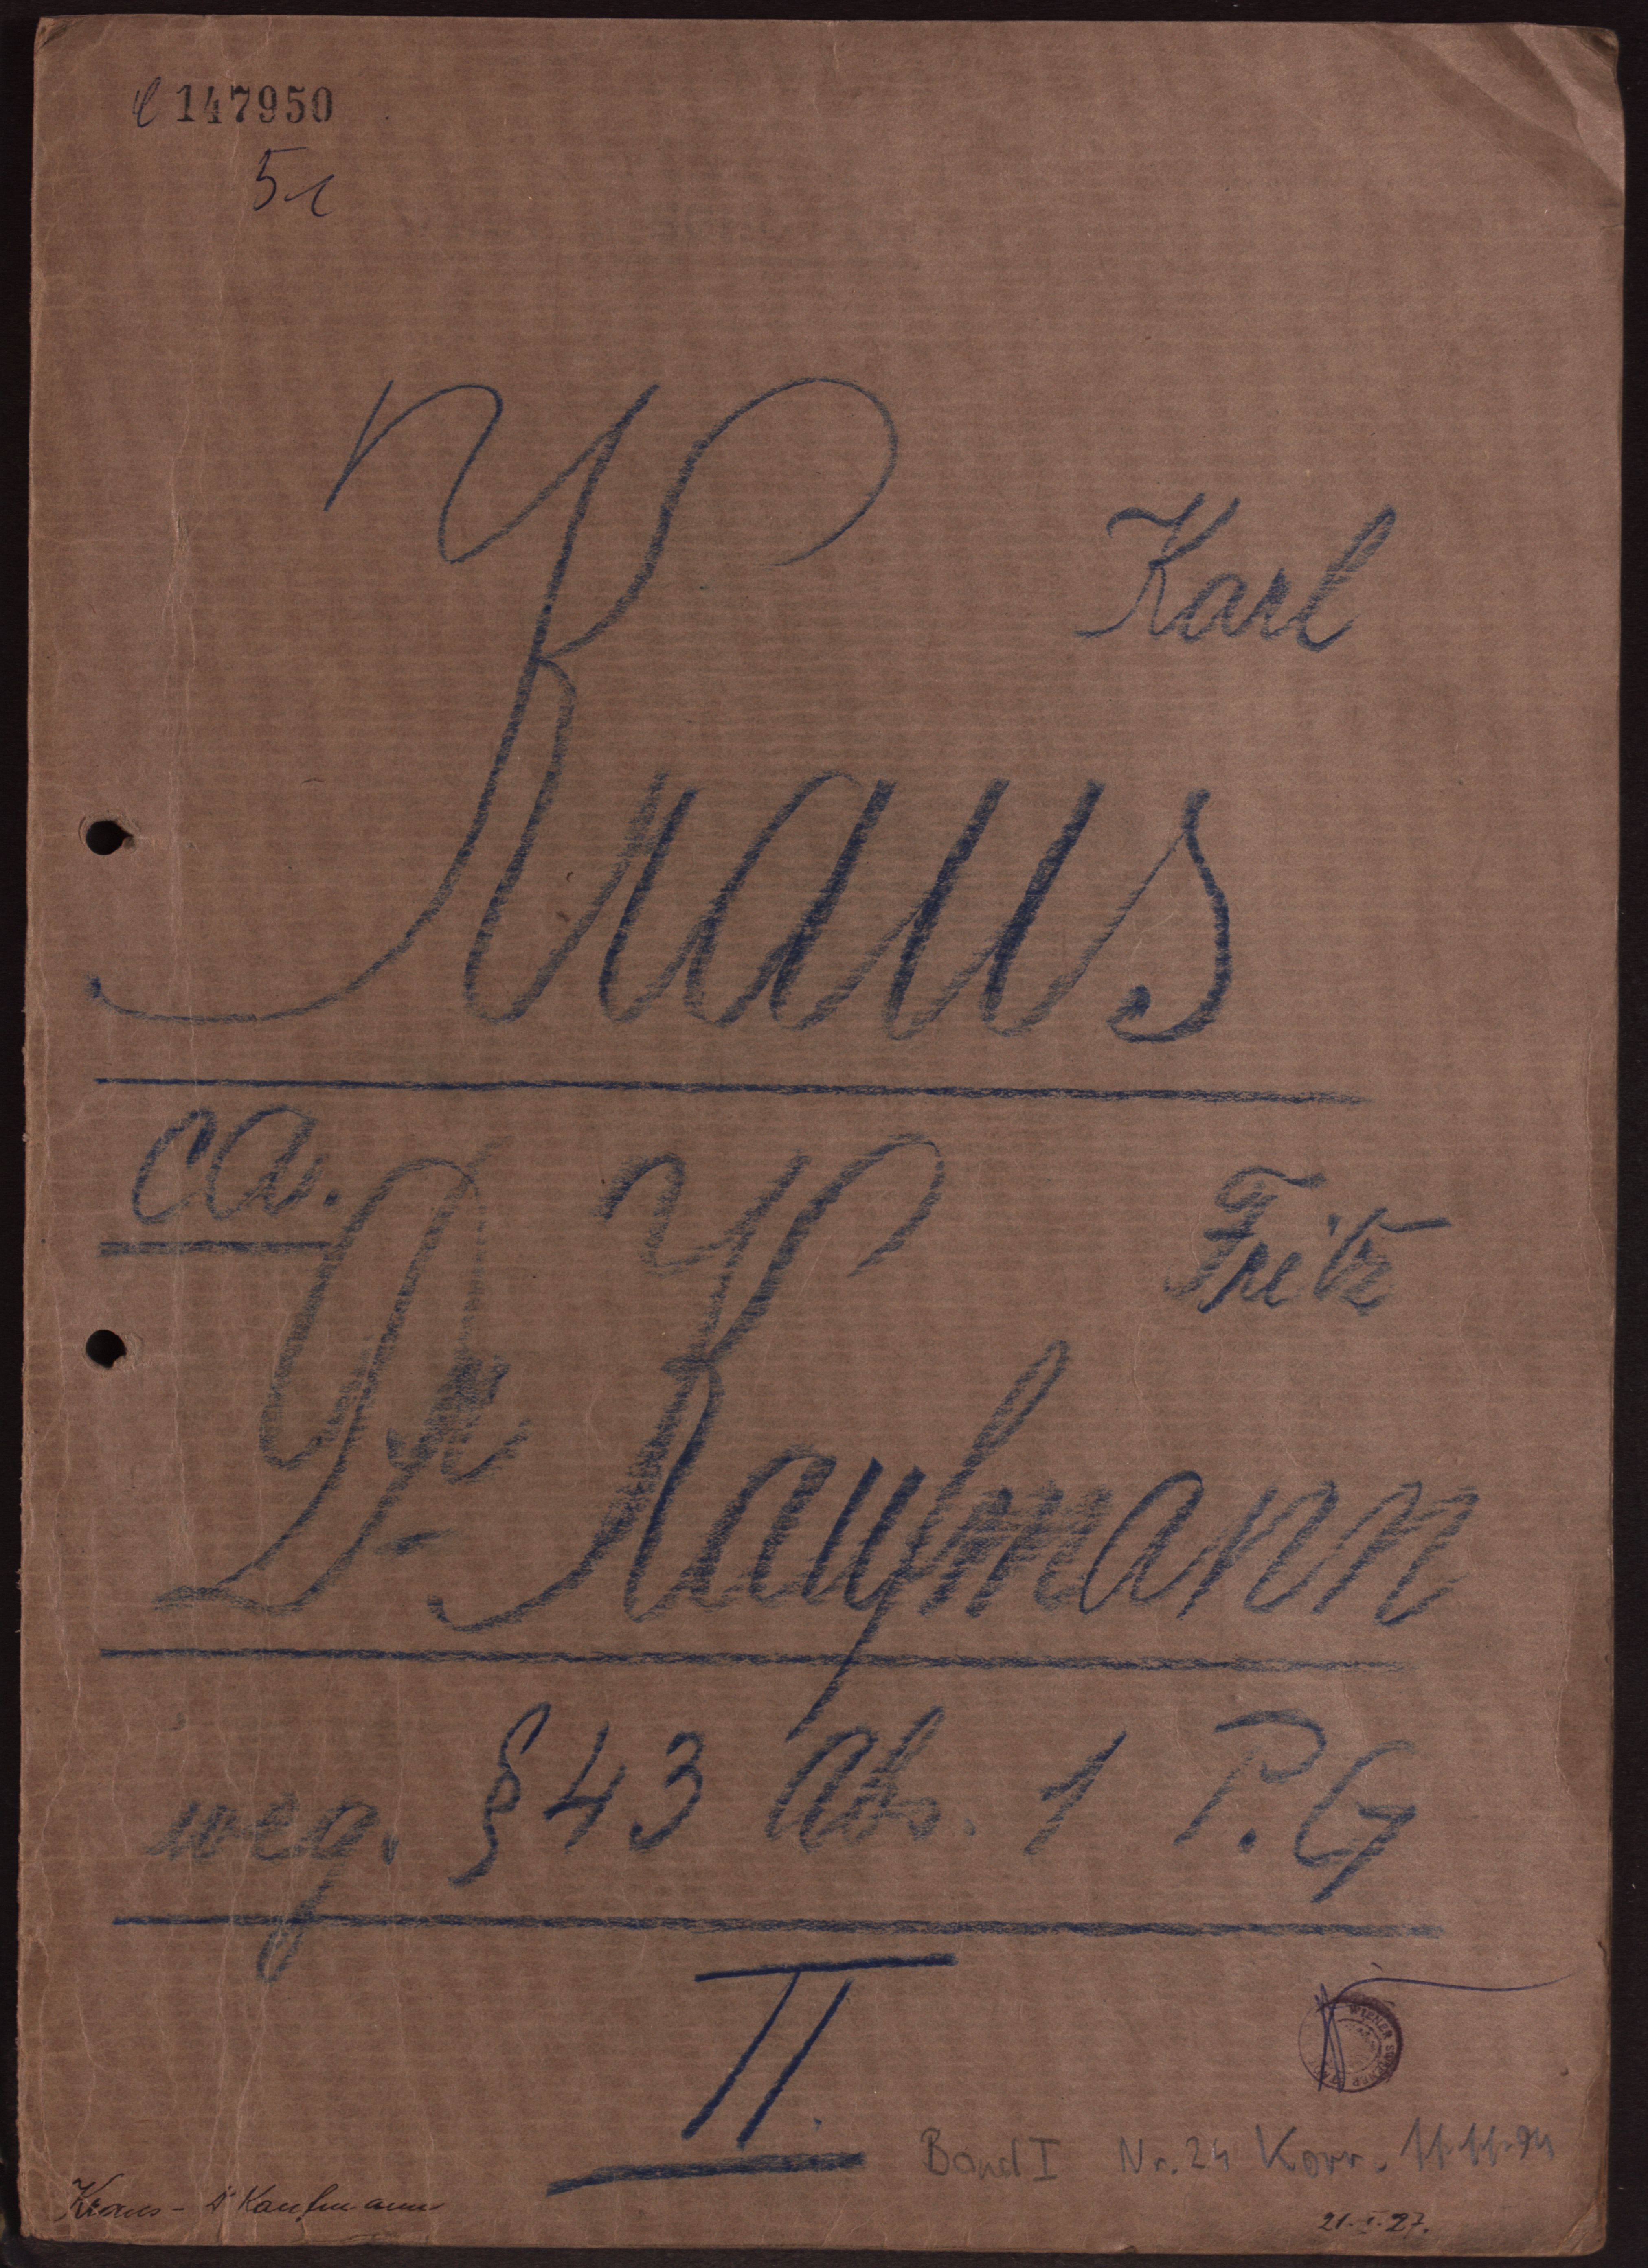 147950
Karl
Kraus
ca.
Fritz
Dr Kaufmann
weg. § 43 Abs. 1 P.G
II.
WIENER
Band I Nr. 24 Korr. 11.11.94
Kraus - Dr Kaufmann
21.I.27.